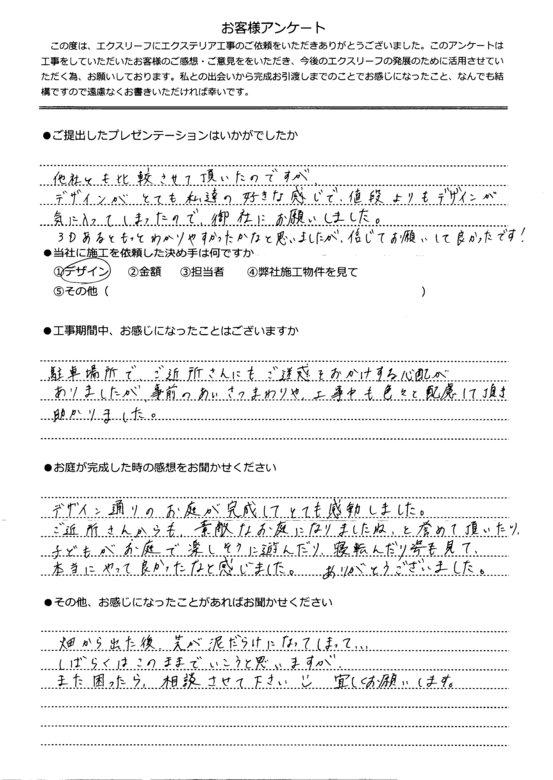 お客様アンケート
この度は、エクスリーフにエクステリア工事のご依頼をいただきありがとうございました。このアンケートは
工事をしていただいたお客様のご感想・ご意見ををいただき、今後のエクスリーフの発展のために活用させてい
ただく為、お願いしております。私との出会いから完成お引渡しまでのことでお感じになったこと、なんでも結
構ですので遠慮なくお書きいただければ幸いです。
●ご提出したプレゼンテーションはいかがでしたか
他社とも比較させて頂いたのですが、
デザインがとても私達の好きな感じで、値段よりもデザインが
気に入ってしまったので、御社にお願いしました。
3Dあるともっとわかりやすかったかなと思いましたが、信じてお願いして良かったです!
●当社に施工を依頼した決め手は何ですか
①デザイン ②金額 ③担当者 ④弊社施工物件を見て
⑤その他( )
●工事期間中、お感じになったことはございますか
駐車場所で ご近所さんにもご迷惑をおかけする心配が
ありましたが、事前のあいさつまわりや、工事中も色々と配慮して頂き
助かりました。
●お庭が完成した時の感想をお聞かせください
デザイン通りのお庭が完成してとても感動しました。
ご近所さんからも、素敵なお庭になりましたね、と誉めて頂いたり、
子どもがお庭で楽しそうに遊んだり、寝転んだり等も見て、
本当にやって良かったなと感じました。 ありがとうございました。
●その他、お感じになったことがあればお聞かせください
畑から出た後、芝が泥だらけになってしまって...
しばらくはこのままでいこうと思いますが、
また困ったら、相談させて下さい 宜しくお願いします。